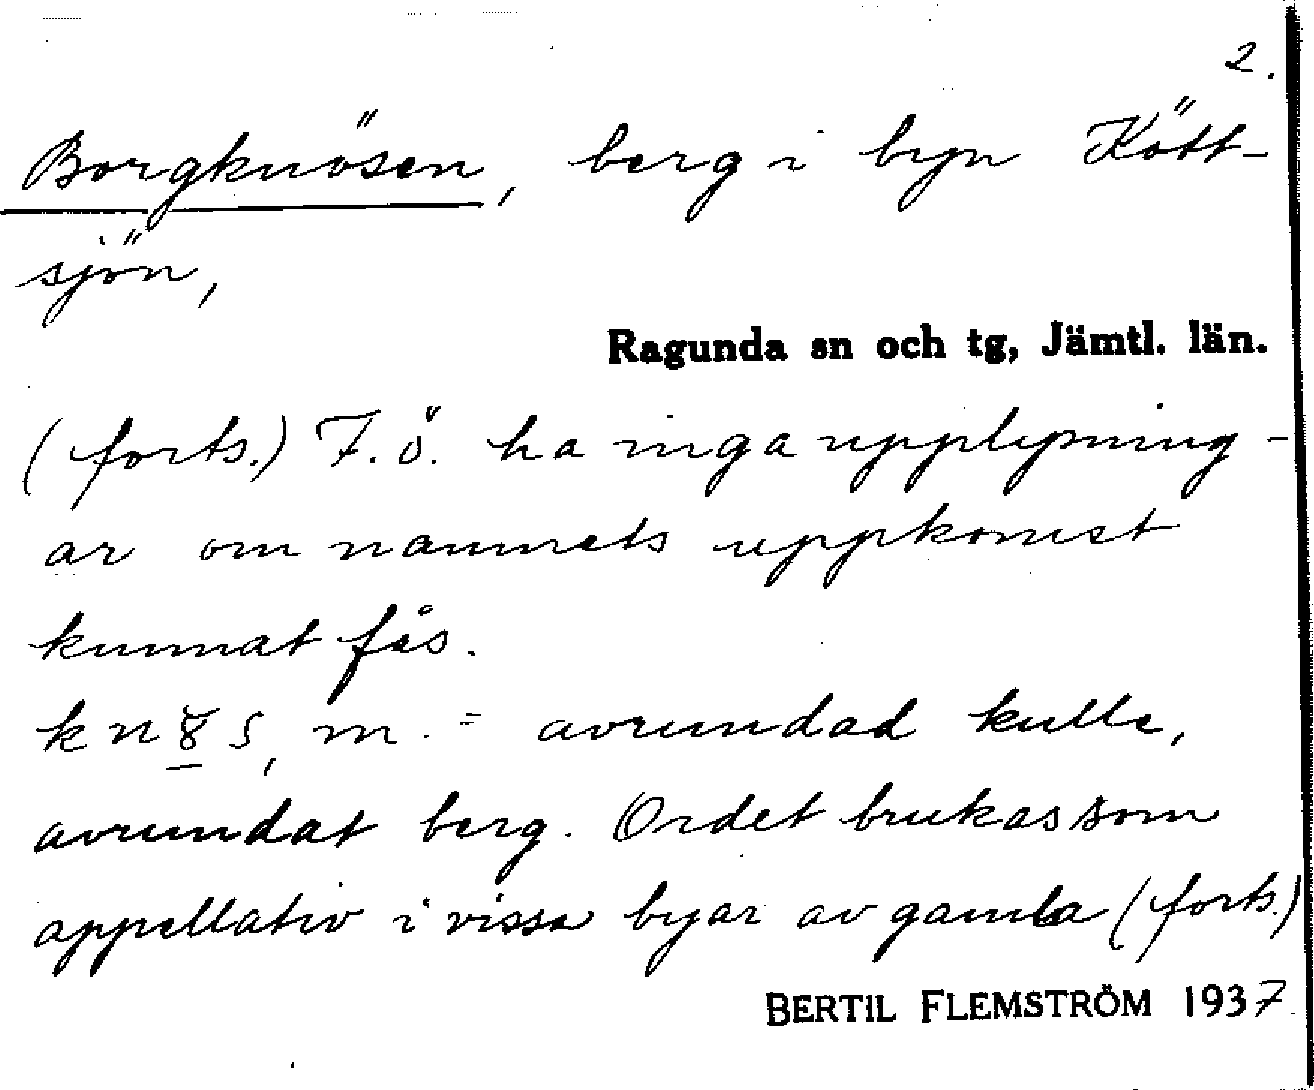 2.
Borgknösen, berg i byn Kött-
sjön,
Ragunda sn och tg, Jämtl. län.
(forts.) F. ö. ha inga upplysning-
ar om namnets uppkomst
kunnat fås.
m. = avrundad kulle,
avrundat berg. Ordet brukas som
appellativ i vissa byar av gamla (forts.)
BERTIL FLEMSTRÖM 1937